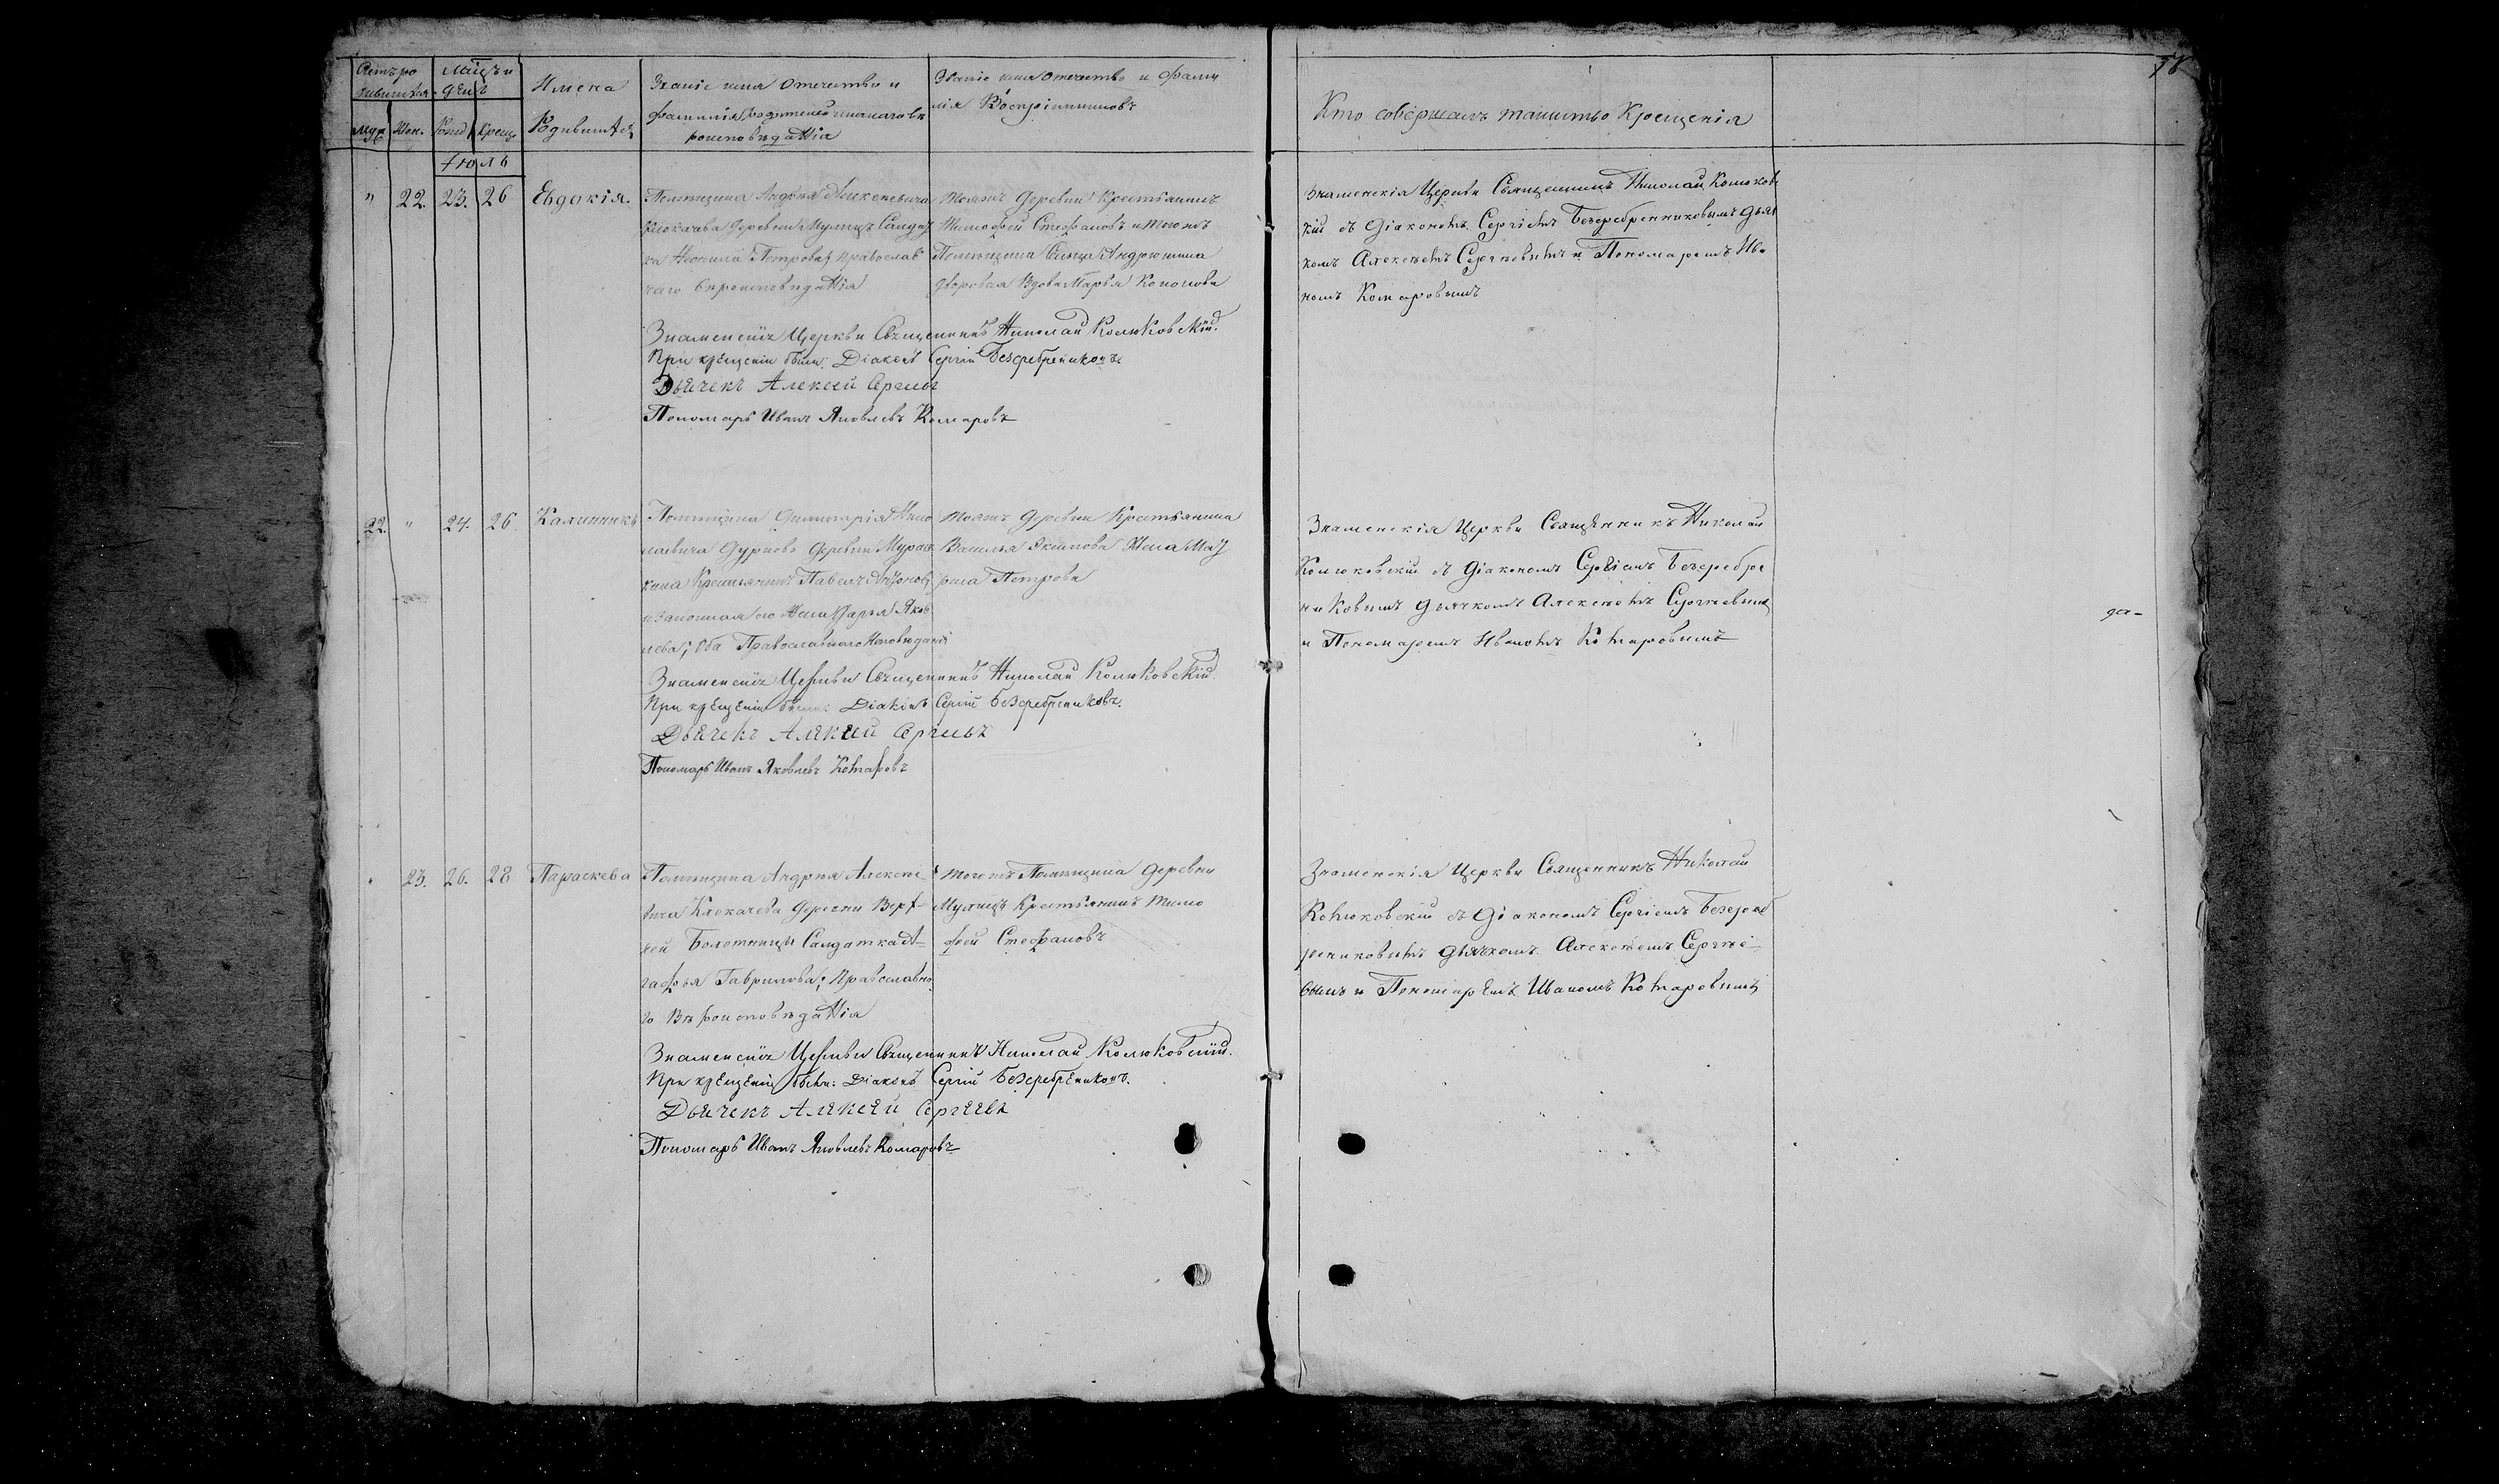 Счетъ ро
Мѣсяцъ и
дившихся
день
Имена
Званіе имя отечество и
Званіе имя отечество и фами
фамилія родителей и какого вѣ
лія Воспріемниковъ
Муж
Жен.
Рожд
Крещ
Родившихся
роисповѣданія
Кто совершалъ таинство Крещенія
Іюль
" 22. 23. 26 Евдокія.
Помѣщика Андрея Алексѣевича
Клокачева деревни Мулищъ Салдат
ка Неонила Петрова; православ
наго вѣроисповѣданія
Тояжъ деревни Крестьянинъ
Тимофей Стефановъ и тогожъ
Помѣщика Сельца Андрюшина
дворовая вдова Марья Кононова
Знаменскія Церкви Священникъ Николай Колюковс
кій съ Діакономъ Сергіемъ Безсребренниковымъ дьяч
комъ Алексѣемъ Сергѣевымъ и Пономаремъ Ива
номъ Комаровымъ
Знаменскія Церкви Священникъ Николай Колюковскій.
При крещеніи были: Діаконъ Сергій Безсребрениковъ.
Дьячекъ Алексей Сергиевъ
Пономарь Иванъ Яковлевъ Комаровъ
22. " 24. 26. Калинникъ
Помѣщика Димитрія Нико
лаевича Дурново деревни Мураш
кина Крестьянинъ Павелъ
и законная его жена Дарья Яков
лева; оба Православнаго исповѣданія
Тояжъ деревни Крестьянина
Василья Якимова жена Мат
рена Петрова
Знаменскія Церкви Священникъ Николай
Колюковскій съ Діакономъ Сергіемъ Безсребре
никовымъ дьячкомъ Алексѣемъ Сергѣевымъ
и Пономаремъ Иваномъ Комаровымъ
да-
Знаменскія Церкви Священникъ Николай Колюковскій.
При крещеніи были: Діаконъ Сергій Безсребрениковъ.
Дьячекъ Алексей Сергиевъ
Пономарь Иванъ Яковлевъ Комаровъ
23. 26. 28 Параскева
Помѣщика Андрея Алексѣе
вича Клокачева деревни Верх-
ней Болотницы Салдатка А-
гафья Гаврилова; православна
го Вѣроисповѣданія
тогожъ Помѣщика деревни
Мулищъ Крестьянинъ Тимо
фей Стефановъ
Знаменскія Церкви Священникъ Николай
Колюковскій съ Діакономъ Сергіемъ Безсреб
рениковымъ дьячкомъ Алексѣемъ Сергѣе-
вымъ и Пономаремъ Иваномъ Комаровымъ
Знаменскія Церкви Священникъ Николай Колюковскій.
При крещеніи были: Діаконъ Сергій Безсребрениковъ.
Дьячекъ Алексей Сергеевъ
Пономарь Иванъ Яковлевъ Комаровъ